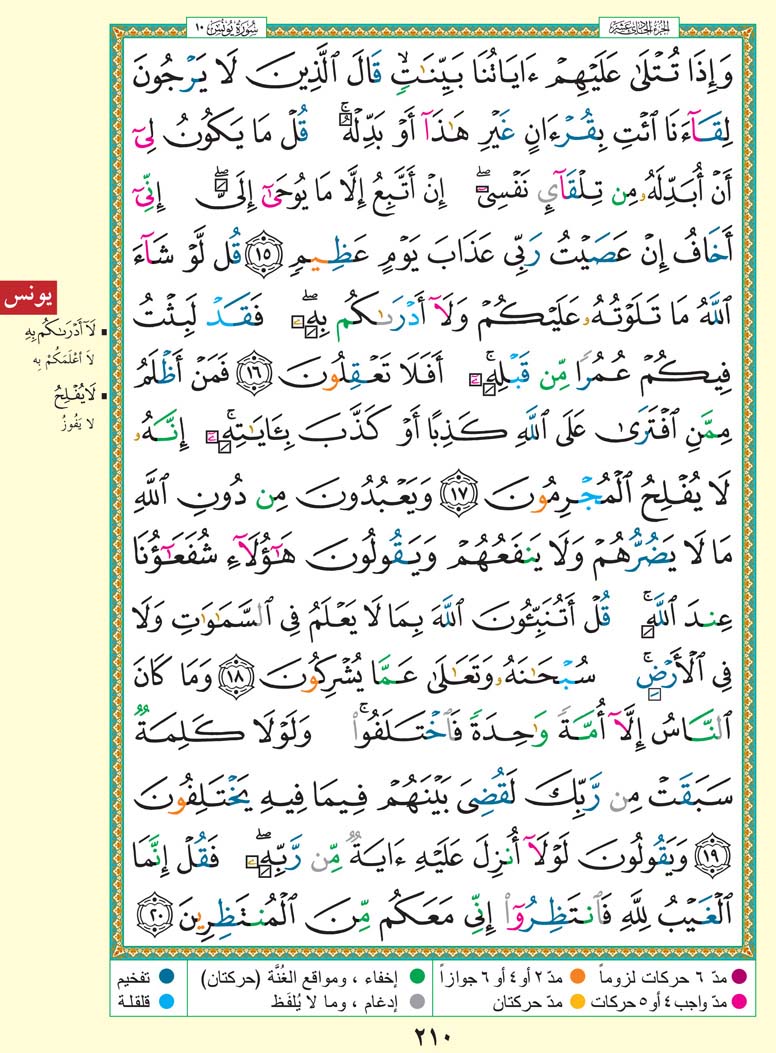 الجزء الحادي عشر
سورة يونس ١٠
وَإِذَا تُتْلَىٰ عَلَيْهِمْ ءَايَاتُنَا بَيِّنَٰتٍۙ قَالَ ٱلَّذِينَ لَا يَرْجُونَ
لِقَآءَنَا ٱئْتِ بِقُرْءَانٍ غَيْرِ هَٰذَآ أَوْ بَدِّلْهُۚ قُلْ مَا يَكُونُ لِىٓ
أَنْ أُبَدِّلَهُۥ مِن تِلْقَآئِ نَفْسِىٓۖ إِنْ أَتَّبِعُ إِلَّا مَا يُوحَىٰٓ إِلَىَّۖ إِنِّىٓ
أَخَافُ إِنْ عَصَيْتُ رَبِّى عَذَابَ يَوْمٍ عَظِيمٍ ١٥ قُل لَّوْ شَآءَ
ٱللَّهُ مَا تَلَوْتُهُۥ عَلَيْكُمْ وَلَآ أَدْرَىٰكُم بِهِۦۖ فَقَدْ لَبِثْتُ
فِيكُمْ عُمُرًا مِّن قَبْلِهِۦٓۚ أَفَلَا تَعْقِلُونَ ١٦ فَمَنْ أَظْلَمُ
مِمَّنِ ٱفْتَرَىٰ عَلَى ٱللَّهِ كَذِبًا أَوْ كَذَّبَ بِـَٔايَٰتِهِۦٓۚ إِنَّهُۥ
لَا يُفْلِحُ ٱلْمُجْرِمُونَ ١٧ وَيَعْبُدُونَ مِن دُونِ ٱللَّهِ
مَا لَا يَضُرُّهُمْ وَلَا يَنفَعُهُمْ وَيَقُولُونَ هَٰٓؤُلَآءِ شُفَعَٰٓؤُنَا
عِندَ ٱللَّهِۚ قُلْ أَتُنَبِّـُٔونَ ٱللَّهَ بِمَا لَا يَعْلَمُ فِى ٱلسَّمَٰوَٰتِ وَلَا
فِى ٱلْأَرْضِۚ سُبْحَٰنَهُۥ وَتَعَٰلَىٰ عَمَّا يُشْرِكُونَ ١٨ وَمَا كَانَ
ٱلنَّاسُ إِلَّآ أُمَّةً وَٰحِدَةً فَٱخْتَلَفُوا۟ۚ وَلَوْلَا كَلِمَةٌ
سَبَقَتْ مِن رَّبِّكَ لَقُضِىَ بَيْنَهُمْ فِيمَا فِيهِ يَخْتَلِفُونَ
١٩ وَيَقُولُونَ لَوْلَآ أُنزِلَ عَلَيْهِ ءَايَةٌ مِّن رَّبِّهِۦۖ فَقُلْ إِنَّمَا
ٱلْغَيْبُ لِلَّهِ فَٱنتَظِرُوٓا۟ إِنِّى مَعَكُم مِّنَ ٱلْمُنتَظِرِينَ ٢٠
يونس
لَآ أَدْرَىٰكُم بِهِ
لا أَعْلَمَكُمْ به
لَا يُفْلِحُ
لا يَفُوزُ
مدّ ٦ حركات لزوماً
مدّ ٢ أو ٤ أو ٦ جوازاً
إخفاء ، ومواقع الغُنَّة (حركتان)
تفخيم
مدّ واجب ٤ أو ٥ حركات
مدّ حركتان
إدغام ، وما لا يُلفَظ
قلقلة
٢١٠